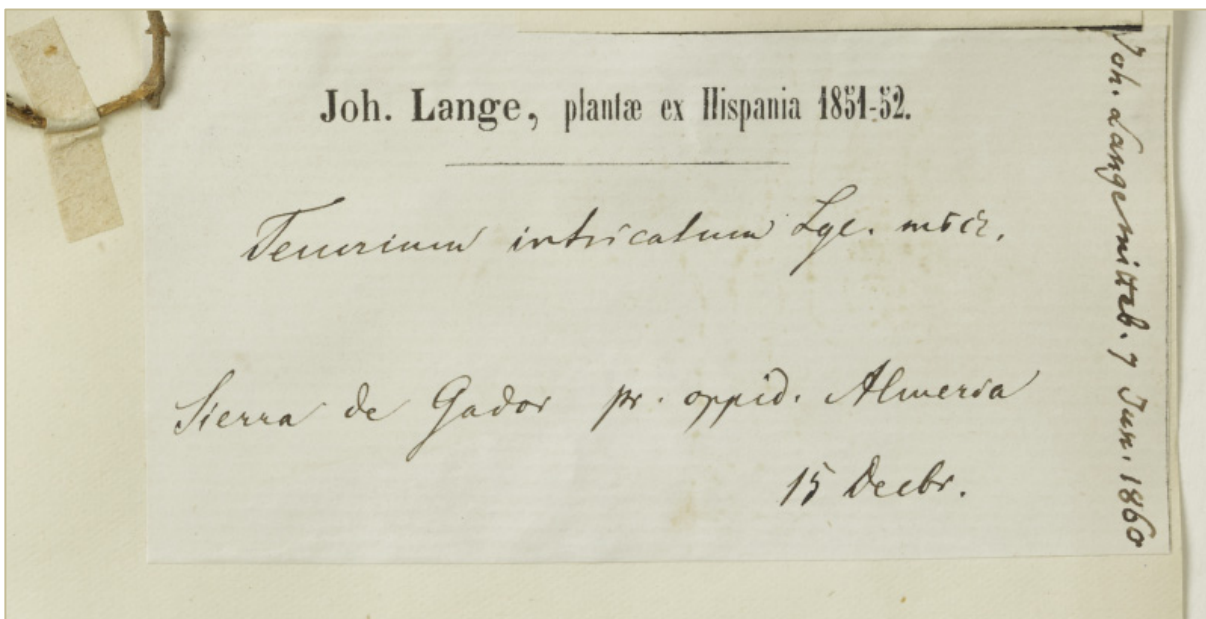 Joh. Lange, plantæ ex Hispania 1851-52.
Teucrium intricatum Lge. mscr.
Sierra de Gador pr. oppid. Almeria
15 Decbr.
Joh. Lange mitteb. 7 Jun. 1860